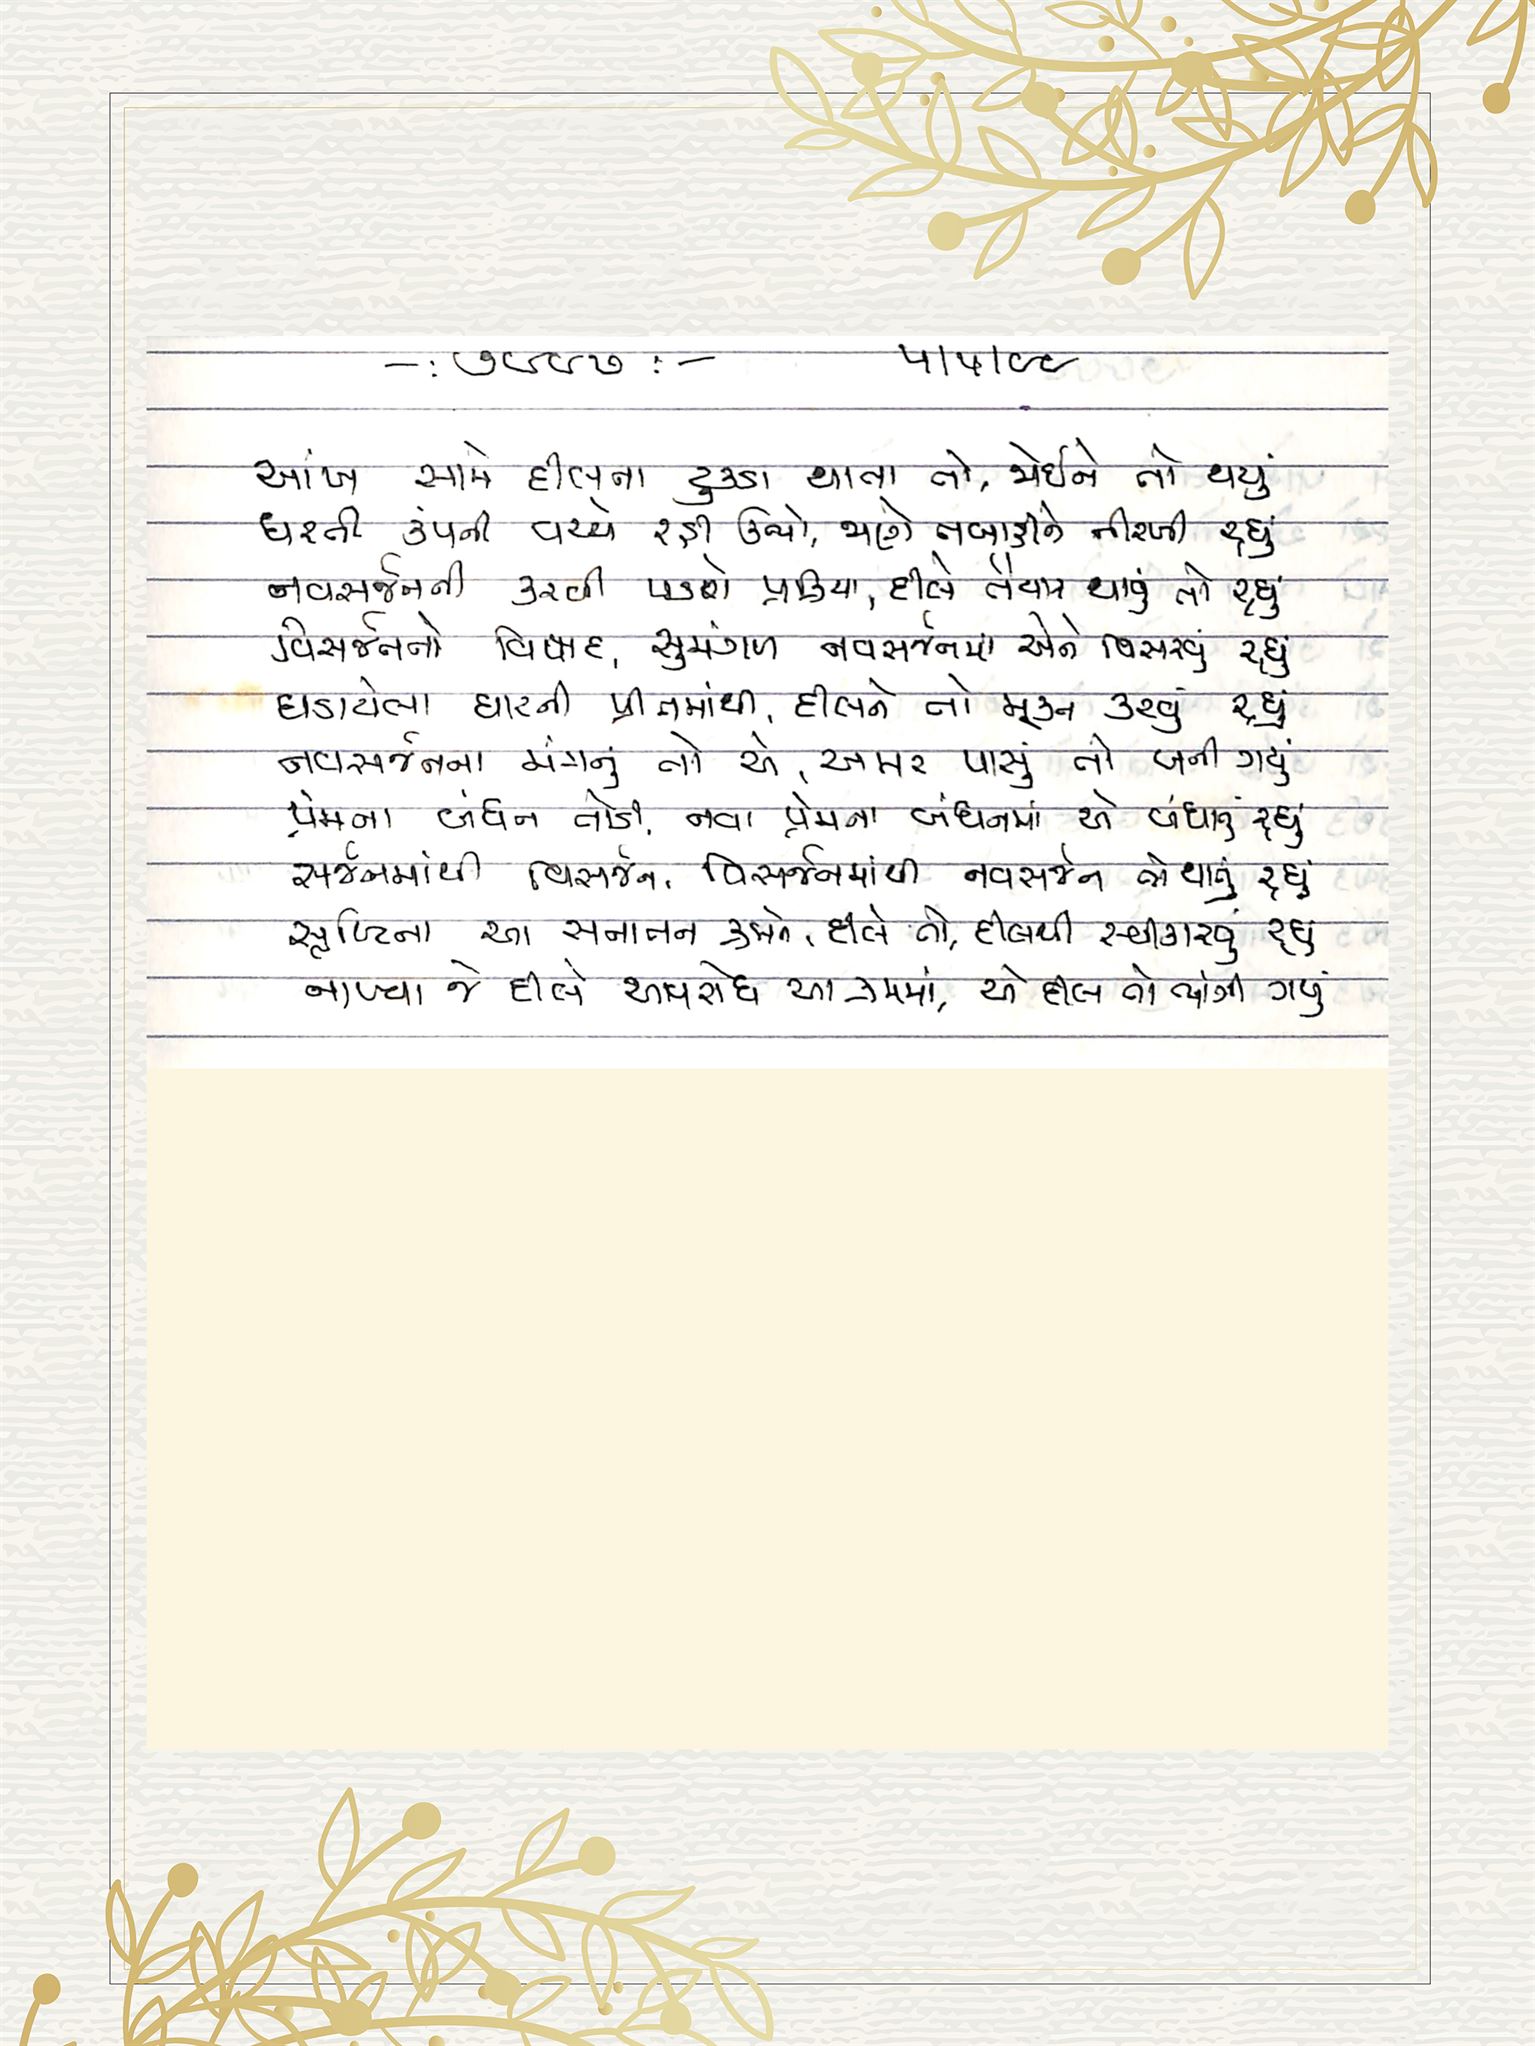 -: ૭૯૯૭ :- ૫।૫।૯૯
આંખ સામે દીલના ટુકડા થાતા તો, જોઈને તો થયું
ધરતી કંપની વચ્ચે રડી ઉઠ્યો, જાણે તબાહીને નીરખી રહ્યું
નવસર્જનની કરવી પડશે પ્રક્રિયા, દીલે તૈયાર થાવું તો રહ્યું
વિસર્જનનો વિષાદ, સુમંગળ નવસર્જનમાં એને વિસરવું રહ્યું
ઘડાયેલા ઘાટની પ્રીતમાંથી, દીલને તો મૂક્ત કરવું રહ્યું
નવસર્જનના મંગનું તો એ, અમર પાસું તો બની ગયું
પ્રેમના બંધન તોડી, નવા પ્રેમના બંધનમાં એ બંધાવું રહ્યું
સર્જનમાંથી વિસર્જન, વિસર્જનમાંથી નવસર્જન એ થાતું રહ્યું
સૃષ્ટિના આ સનાતન ક્રમને, દીલે તો, દીલથી સ્વીકારવું રહ્યું
નાખ્યા જે દીલે અવરોધ આ ક્રમમાં, એ દીલ તો ભાંગી ગયું